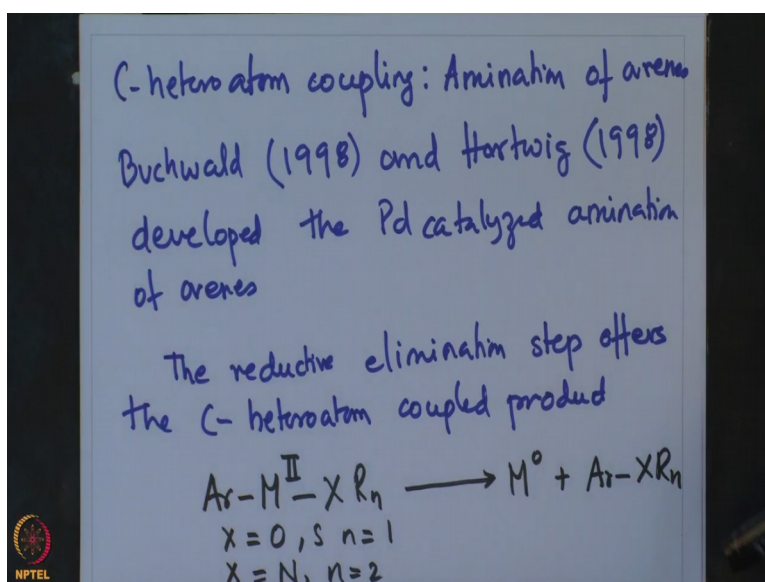 C-heteroatom coupling: Amination of arenes
Buchwald (1998) and Hartwig (1998)
developed the Pd catalyzed amination
of arenes
The reductive elimination step offers
the C-heteroatom coupled product
Ar-M^II-XRn ⟶ M⁰ + Ar-XRn
X = O, S n = 1
X = N, n = 2
NPTEL